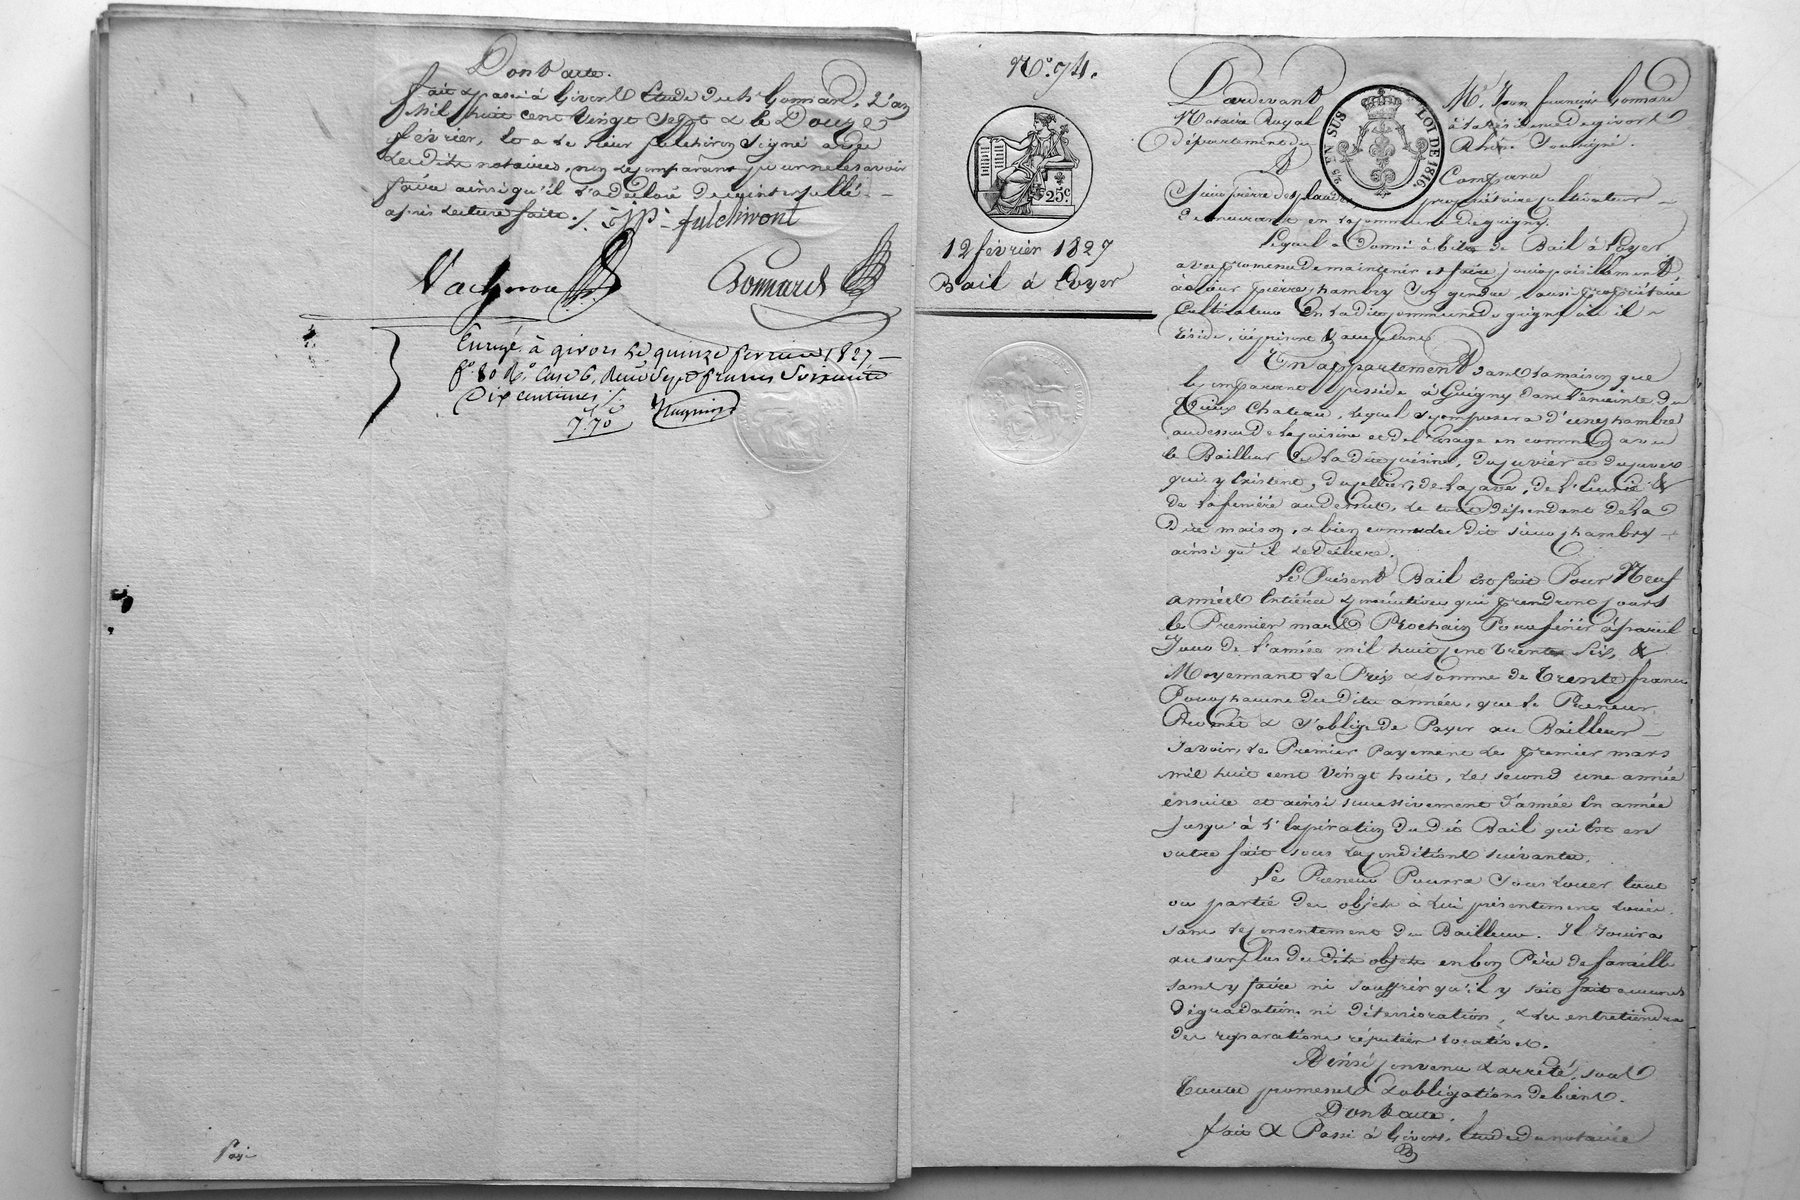 Dont acte.
fait & passé à Givors Etude du Sr Gonnard, L'an
Mil huit cent vingt Sept & le Douze
février, & le Sieur fulchiron Signé avec
Lesdits notaires, non le comparant pour ne le savoir
faire ainsi qu'il l'a déclaré De ce interpellé -
après lecture faite ./.
JP fulchiront
Gonnard
Enregé à givors le quinze fevrier 1827 -
fo 80 Ro Case 6, Reçu Sept francs Soixante
Dix centimes /.
7.70
No. 74.
25c.
12 février 1827
Bail à Loyer
EN SUS LOI DE 1816
Pardevant Me. Jean françois Gonnard
Notaire Royal à la résidence de givors
département du Rhône Soussigné.
Comparu
propriétaire cultivateur -
Demeurant en la commune de guigny.
Lequel a Donné à titre de Bail à Loyer
avec promesse de maintenir et faire jouir paisiblement,
à Sieur pierre chambry Son gendre aussi propriétaire
Cultivateur En la dite commune de guigny où il -
réside, ici présent & acceptant
Un appartement dans la maison que
le comparant possède à Guigny dans l'enceinte du
Vieux Chateau, lequel Se composera d'une chambre
au dessus De la cuisine et de l'usage en commun avec
le Bailleur De la dite cuisine, du cuvier et du
qui y Existent, du cellier, de la cave, de l'Ecurie &
de la fenière au dessus, le tout dépendant de la
Dite maison, & bien connu du dit Sieur chambry -
ainsi qu'il le déclare.
Le Présent Bail est fait Pour Neuf
années Entières & consécutives qui prendront cours
le Premier mars Prochain Pour finir à pareil
Jour de l'année mil huit cent trente Six, &
Moyennant le Prix & somme de Trente francs
Pour chacune des Dites années, que le Preneur
Promet & s'oblige de Payer au Bailleur -
savoir, le Premier Payement le premier mars
mil huit cent vingt huit, le second une année
ensuite et ainsi successivement d'année En année
jusqu'à l'Expiration du dit Bail qui Est en
outre fait sous les conditions suivantes.
Le Preneur Pourra Sous Louer tout
ou partie des objets à lui présentement loués,
sans le consentement du Bailleur. Il Jouira
au surplus des dits objets en bon Père de famille
sans y faire ni souffrir qu'il y soit fait aucunes
dégradations ni détériorations, & les entretiendra
des reparations réputées locatives.
Ainsi convenu & arrêté, sous
Toutes promesses & obligations de biens.
Dont acte.
fait & Passé à Givors, Etude du notaire